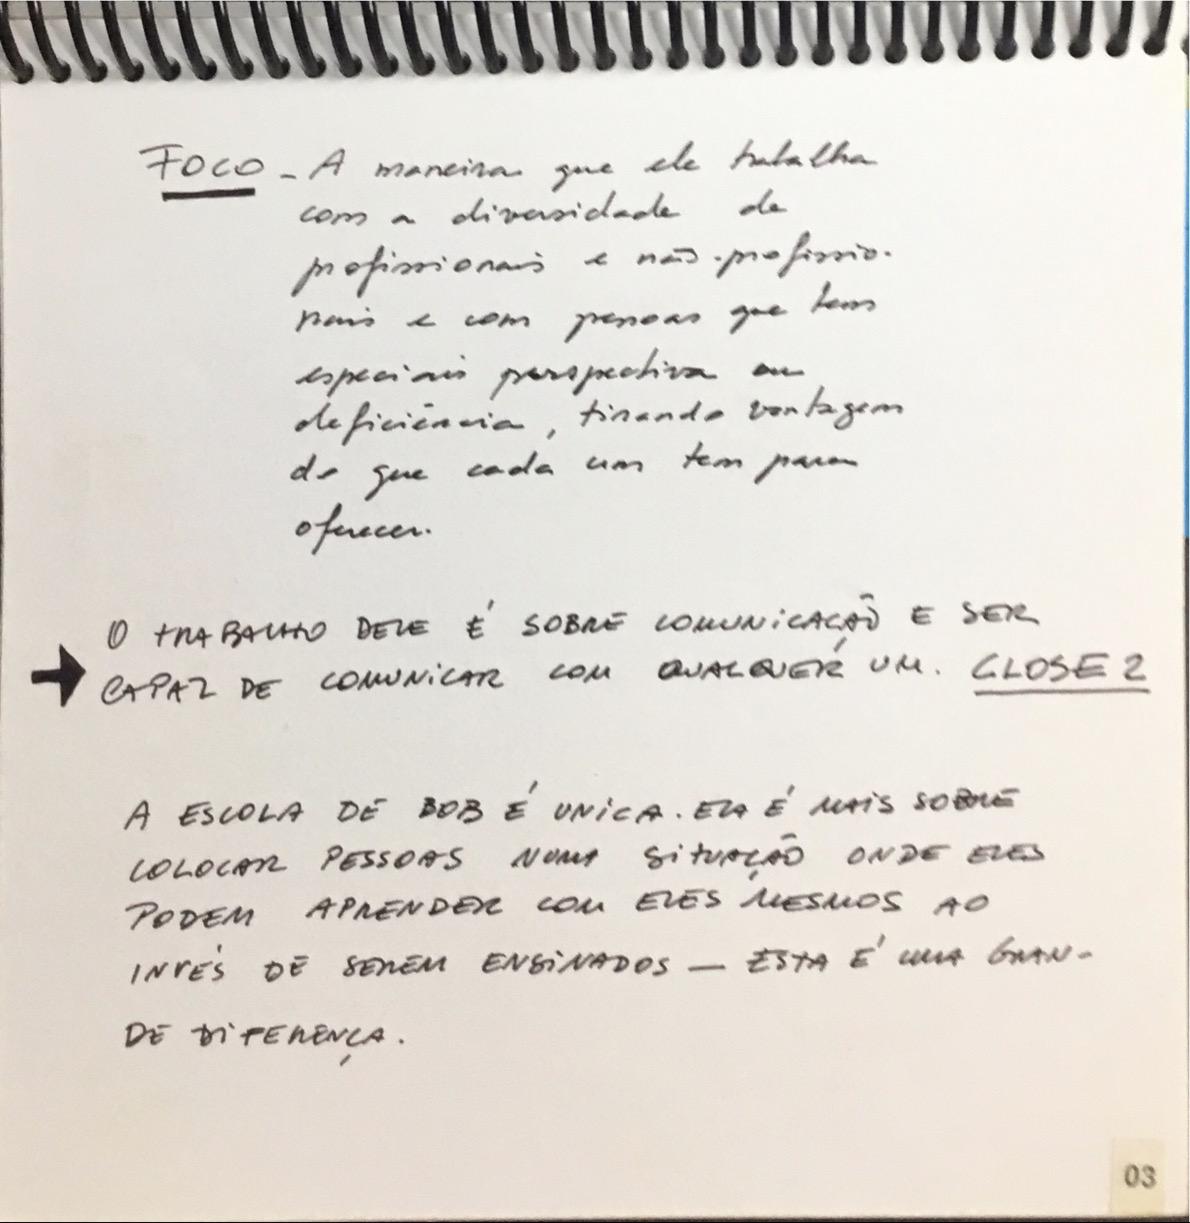 FOCO - A maneira que ele trabalha
com a diversidade de
profissionais e não-profissio-
nais e com pessoas que tem
especiais perspectiva ou
deficiência, tirando vantagem
do que cada um tem para
oferecer.
O TRABALHO DELE É SOBRE COMUNICAÇÃO E SER
CAPAZ DE COMUNICAR COM QUALQUER UM. CLOSE 2
A ESCOLA DE BOB É UNICA. ELA É MAIS SOBRE
COLOCAR PESSOAS NUMA SITUAÇÃO ONDE ELES
PODEM APRENDER COM ELES MESMOS AO
INVÉS DE SEREM ENSINADOS — ESTA É UMA GRAN-
DE DIFERENÇA.
03